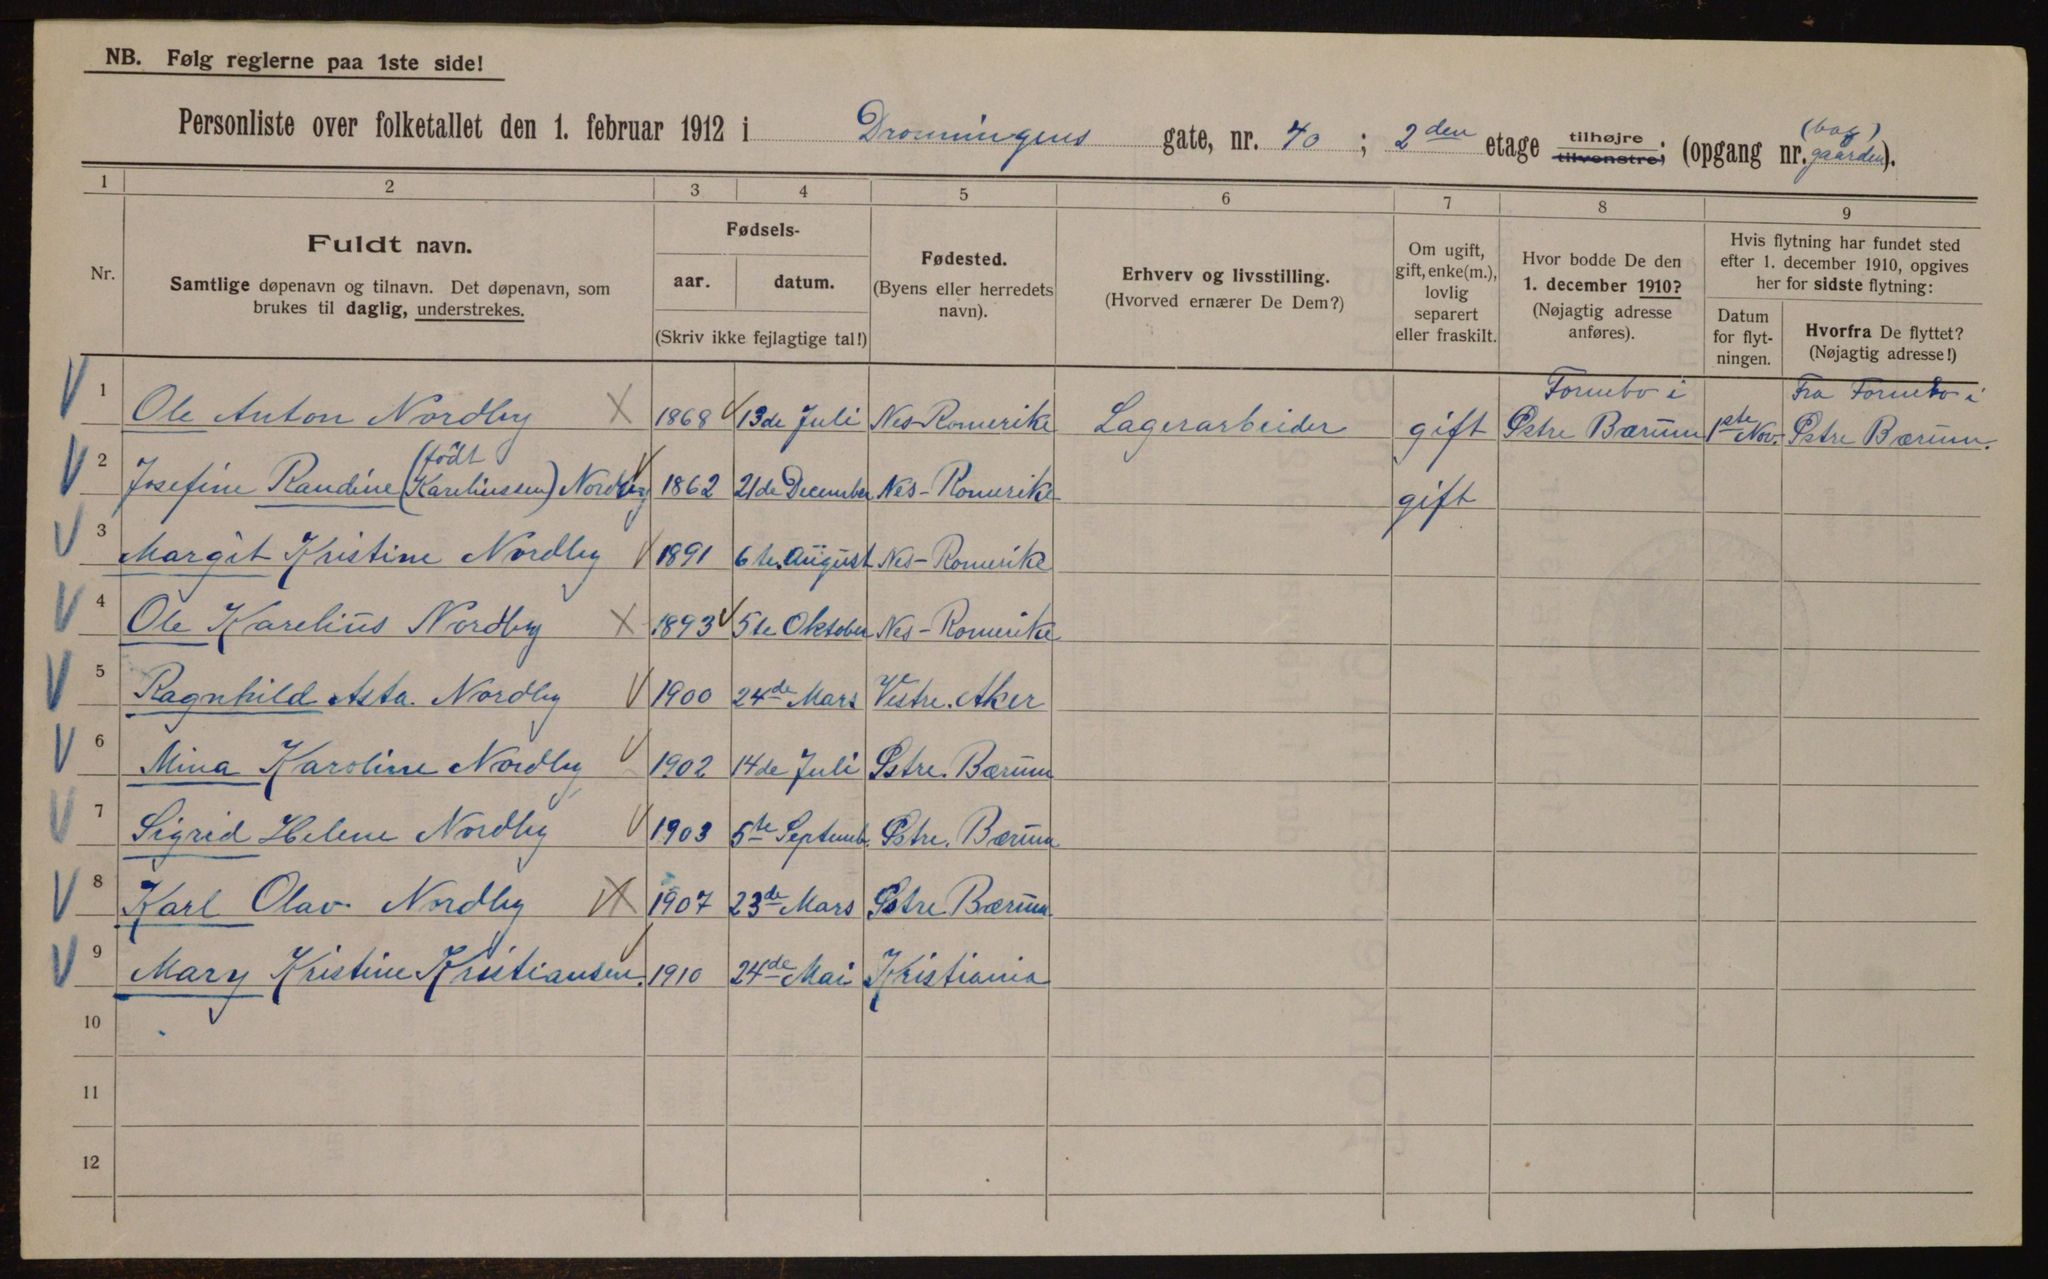 NB. Følg reglerne paa 1ste side!
Personliste over folketallet den 1. februar 1912 i Dronningens gate, nr. 40 ; 2den etage tilhøjre tilvenstre; (opgang nr. (bag) gaarden).
1 2 3 4 5 6 7 8 9
Nr.
Fuldt navn.
Samtlige døpenavn og tilnavn. Det døpenavn, som
brukes til daglig, understrekes.
Fødsels-
aar. datum.
(Skriv ikke fejlagtige tal!)
Fødested.
(Byens eller herredets
navn).
Erhverv og livsstilling.
(Hvorved ernærer De Dem?)
Om ugift,
gift, enke(m.),
lovlig
separert
eller fraskilt.
Hvor bodde De den
1. december 1910?
(Nøjagtig adresse
anføres).
Hvis flytning har fundet sted
efter 1. december 1910, opgives
her for sidste flytning:
Datum
for flyt-
ningen.
Hvorfra De flyttet?
(Nøjagtig adresse!)
Fornebo i Fra Fornebo i
1 Ole Anton Nordby 1868 13de Juli Nes Romerike Lagerarbeider gift Østre Bærum 1ste Nov. Østre Bærum.
2 Josefine Randine (født Kareliussen) Nordby 1862 21de December Nes-Romerike gift
3 Margit Kristine Nordby 1891 6te August Nes-Romerike
4 Ole Karelius Nordby 1893 5te Oktober Nes-Romerike
5 Ragnhild Asta. Nordby 1900 24de Mars Vestre. Aker
6 Mina Karoline Nordby 1902 14de Juli Østre. Bærum
7 Sigrid Helene Nordby 1903 5te Septemb. Østre. Bærum
8 Karl Olav. Nordby 1907 23de Mars Østre Bærum
9 Mary Kristine Kristiansen. 1910 24de Mai Kristiania
10
11
12